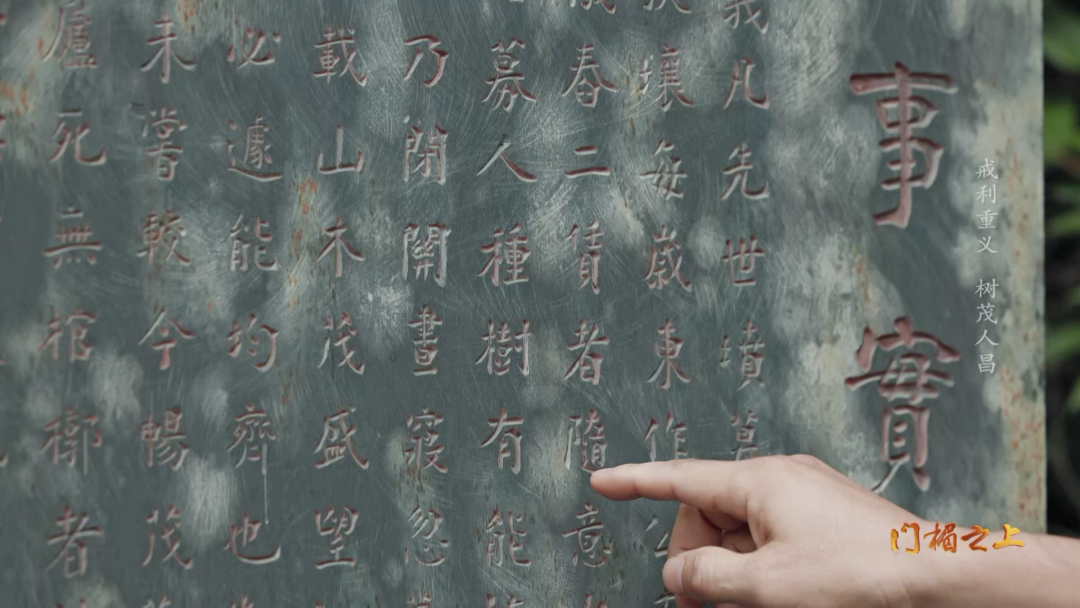 戒利重义 树茂人昌
事實
義凡先世墳墓
壤每歲東作
春二賃者隨意
募人種樹有能
乃閉關晝寢忽
載山木茂盛望
必遽能均齊也
未嘗較今暢茂
廬死無棺槨者
门楣之上